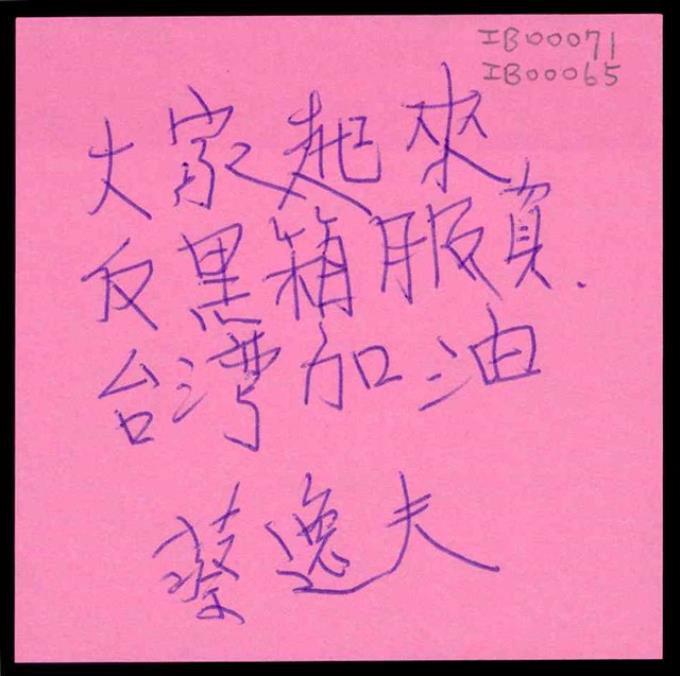 IB00071
IB00065
大家起來
反黑箱服貿.
台湾加油
蔡逸夫